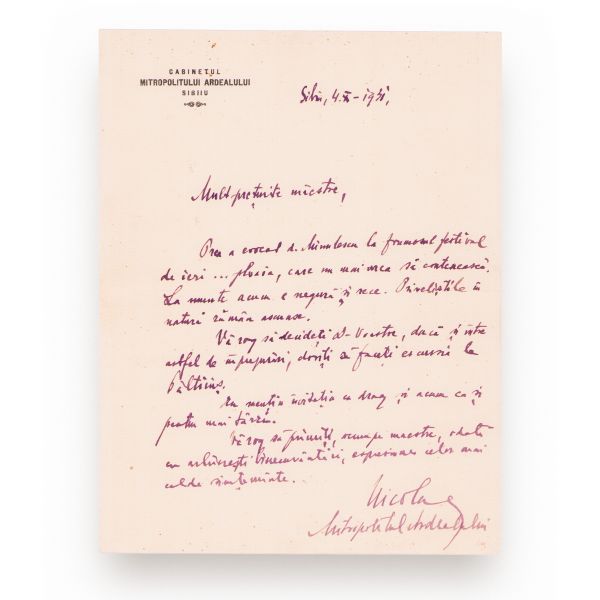 CABINETUL
MITROPOLITULUI ARDEALULUI
SIBIIU
Sibiu, 4.XI-1931,
Mult prețuite măestre,
Prea a evocat d. Minulescu la frumosul festival
de ieri ... ploaia, care nu mai vrea să contenească.
La munte acum e negură și rece. Priveliștile în
natură rămân ascunse.
Vă rog să decideți D-Voastre, dacă și între
astfel de împrejurări, doriți să faceți escursii la
Păltiniș.
Eu mențin invitația cu drag și acum ca și
pentru mai târziu.
Vă rog să primiți, scumpe maestre, odată
cu arhierești binecuvântări, expresiunea celor mai
calde simțeminte.
Nicolae
Mitropolitul Ardealului